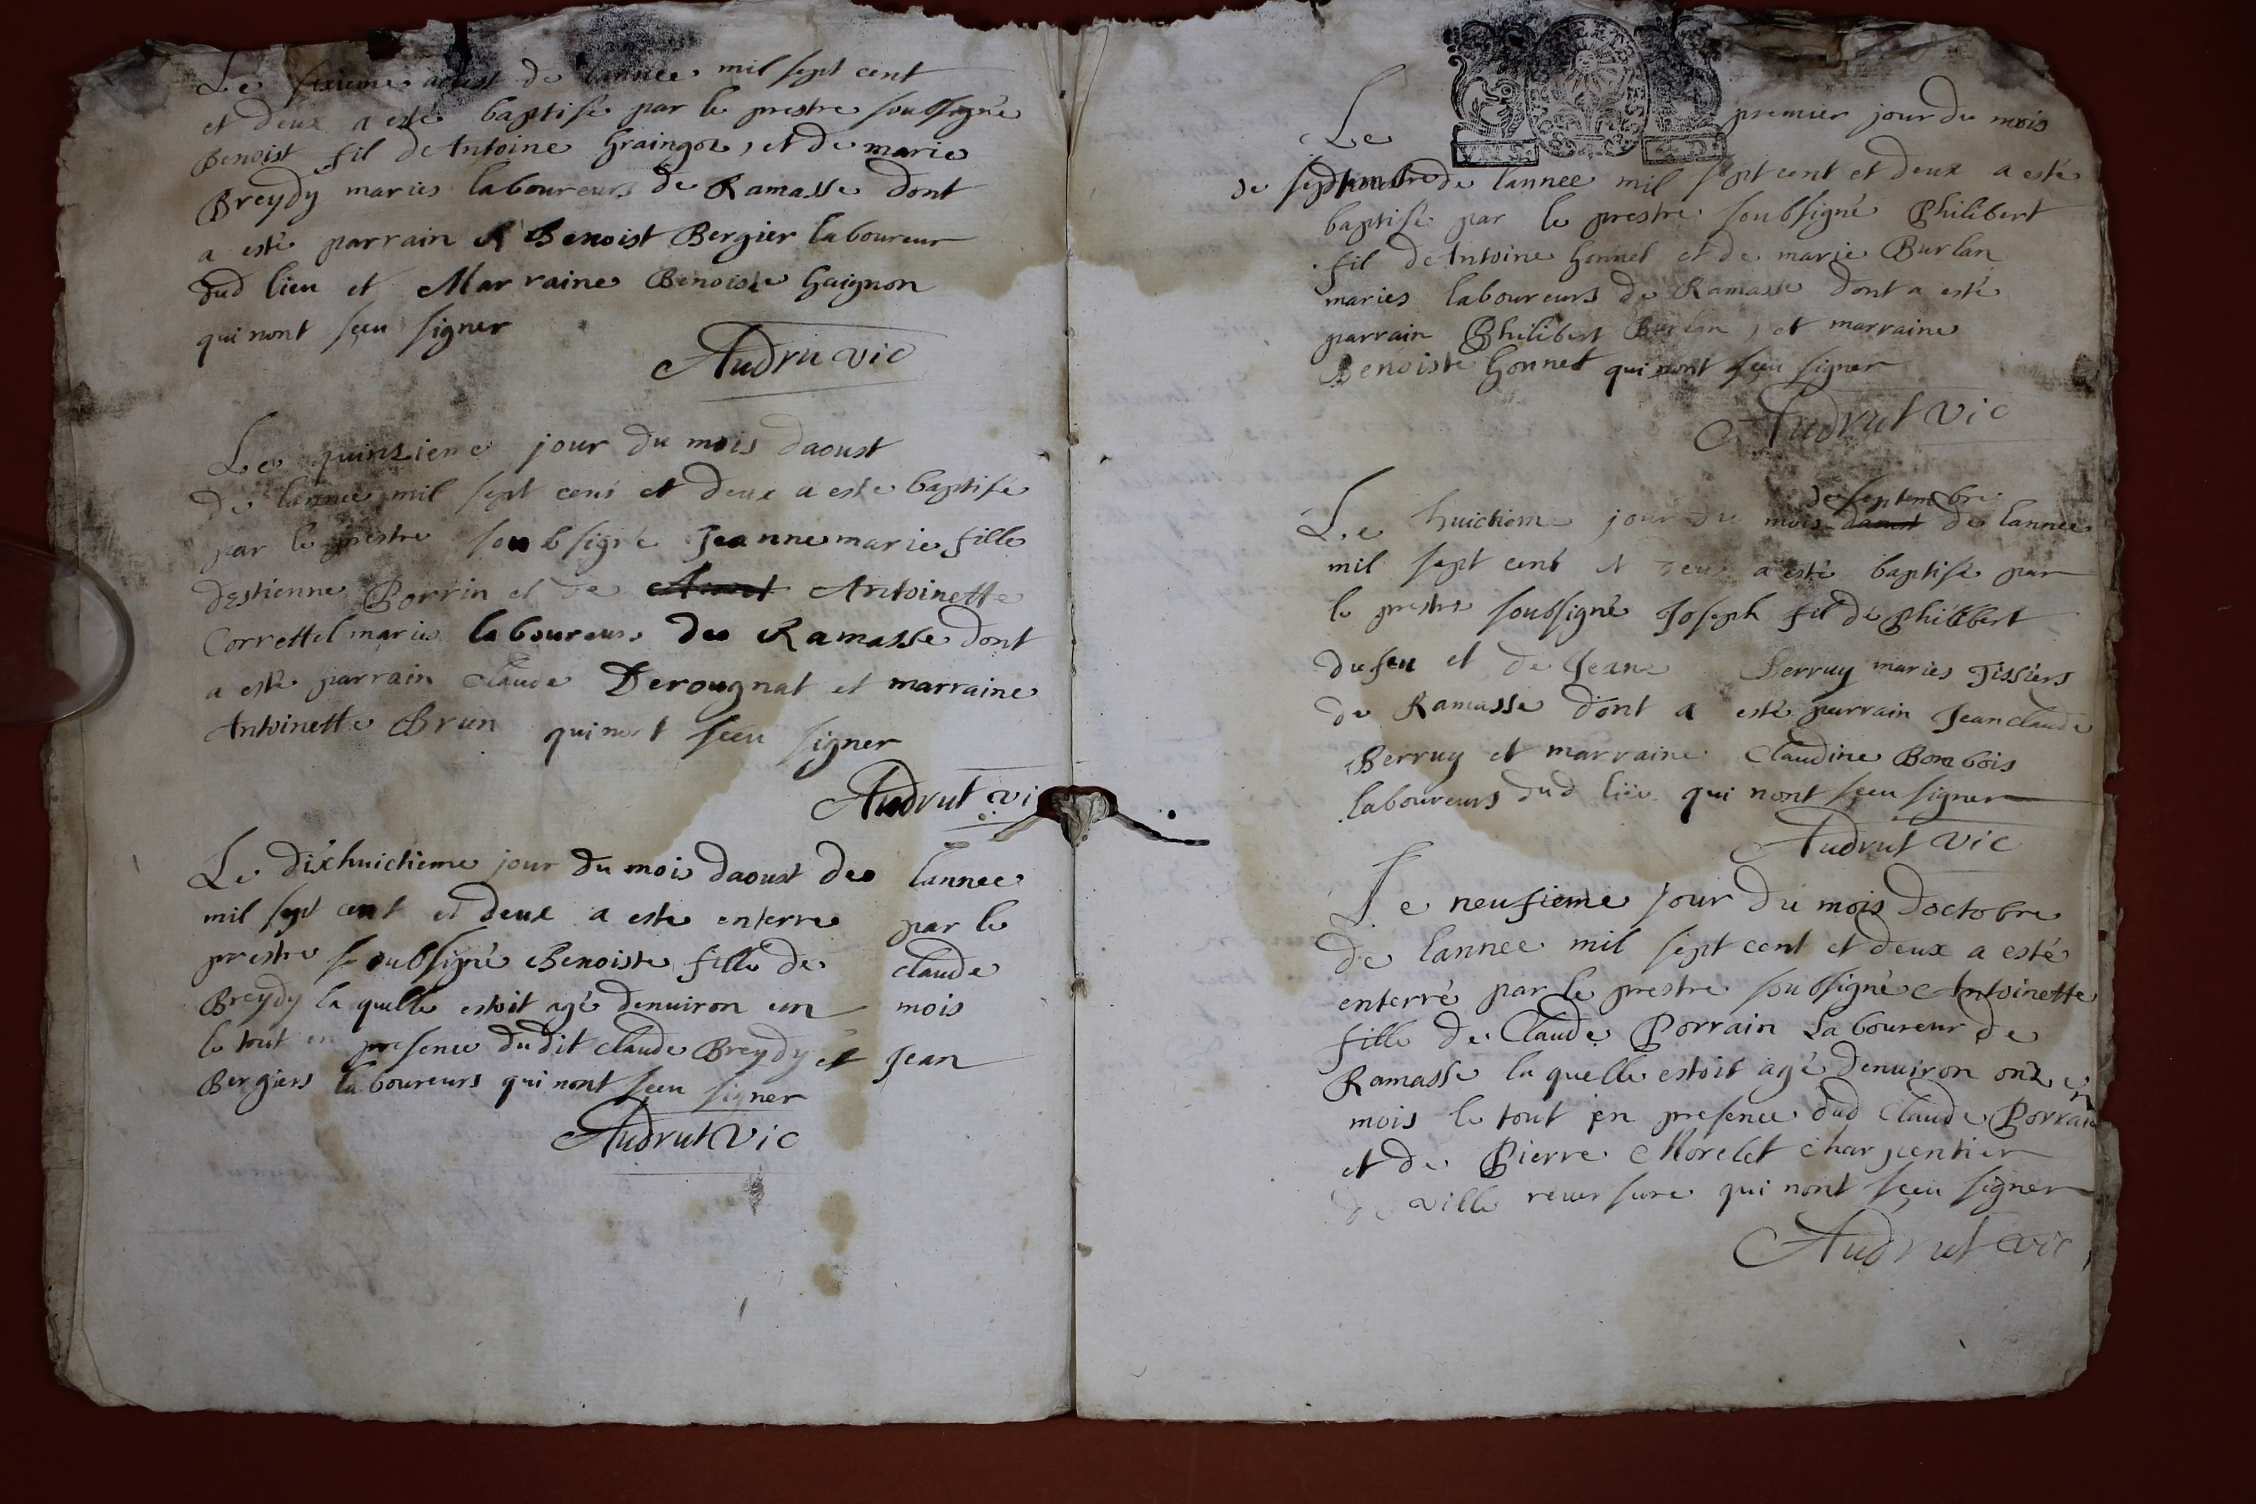 Le sixieme aoust de lannee mil sept cent
et deux a esté baptisé par le prestre soubsigné
Benoist fil de Antoine Graingoz, et de marie
Breydy mariés laboureurs de Ramasse dont
a esté parrain Benoist Bergier laboureur
dud lieu et Marraine Benoiste Guignon
qui nont sceu signer
Audrut vic
Le quinsieme jour du mois daoust
de lannee mil sept cens et deux a esté baptisé
par le prestre soubsigné Jeanne marie fille
destienne Porrin et de Antoinette
Correttel mariés laboureurs de Ramasse dont
a esté parrain Claude Derougnat et marraine
Antoinette Brun qui nont sceu signer
Audrut vi
Le dixhuictieme jour du mois daoust de lannee
mil sept cent et deux a esté enterre par le
prestre soubsigné Benoiste fille de Claude
Breydy la quelle estoit agé denuiron un mois
le tout en presence dudit Claude Breydy et Jean
Bergiers laboureurs qui nont sceu signer
Audrut Vic
Le premier jour du mois
de septembre de lannee mil sept cent et deux a esté
baptisé par le prestre soubsigné Philibert
fil de Antoine Gonnet et de marie Burlan
mariés laboureurs de Ramasse dont a esté
parrain Philibert Burlan, et marraine
Benoiste Gonnet qui nont sceu signer
Audrut vic
de septembre
Le huictieme jour du mois daoust de lannee
mil sept cent et deux a esté baptisé par
le prestre soubsigné Joseph fil de Philibert
dufeu et de Jeane Berruy mariés Tissiers
de Ramasse dont a esté parrain Jean claude
Berruy et marraine Claudine Bonbois
laboureurs dud lieu qui nont sceu signer
Audrut vic
Le neufieme jour du mois doctobre
de lannee mil sept cent et deux a esté
enterré par le prestre soubsigné Antoinette
fille de Claude Porrain Laboureur de
Ramasse la quelle estoit agé denuiron onze
mois le tout en presence dud Claude Porrain
et de Pierre Morelet charpentier
de ville reuersure qui nont sceu signer
Audrut vic